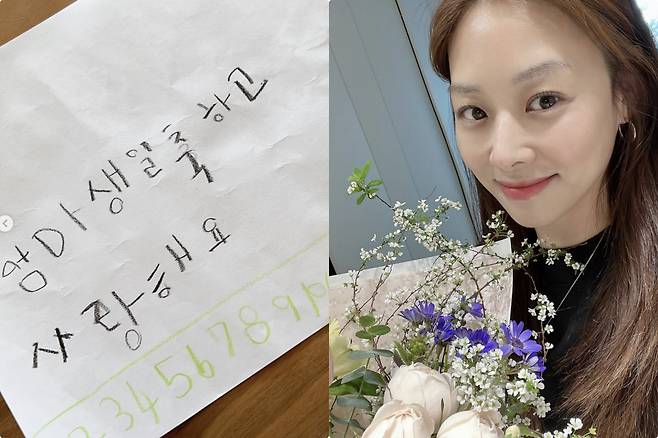 엄마 생일축하고
사랑해요
2345678910